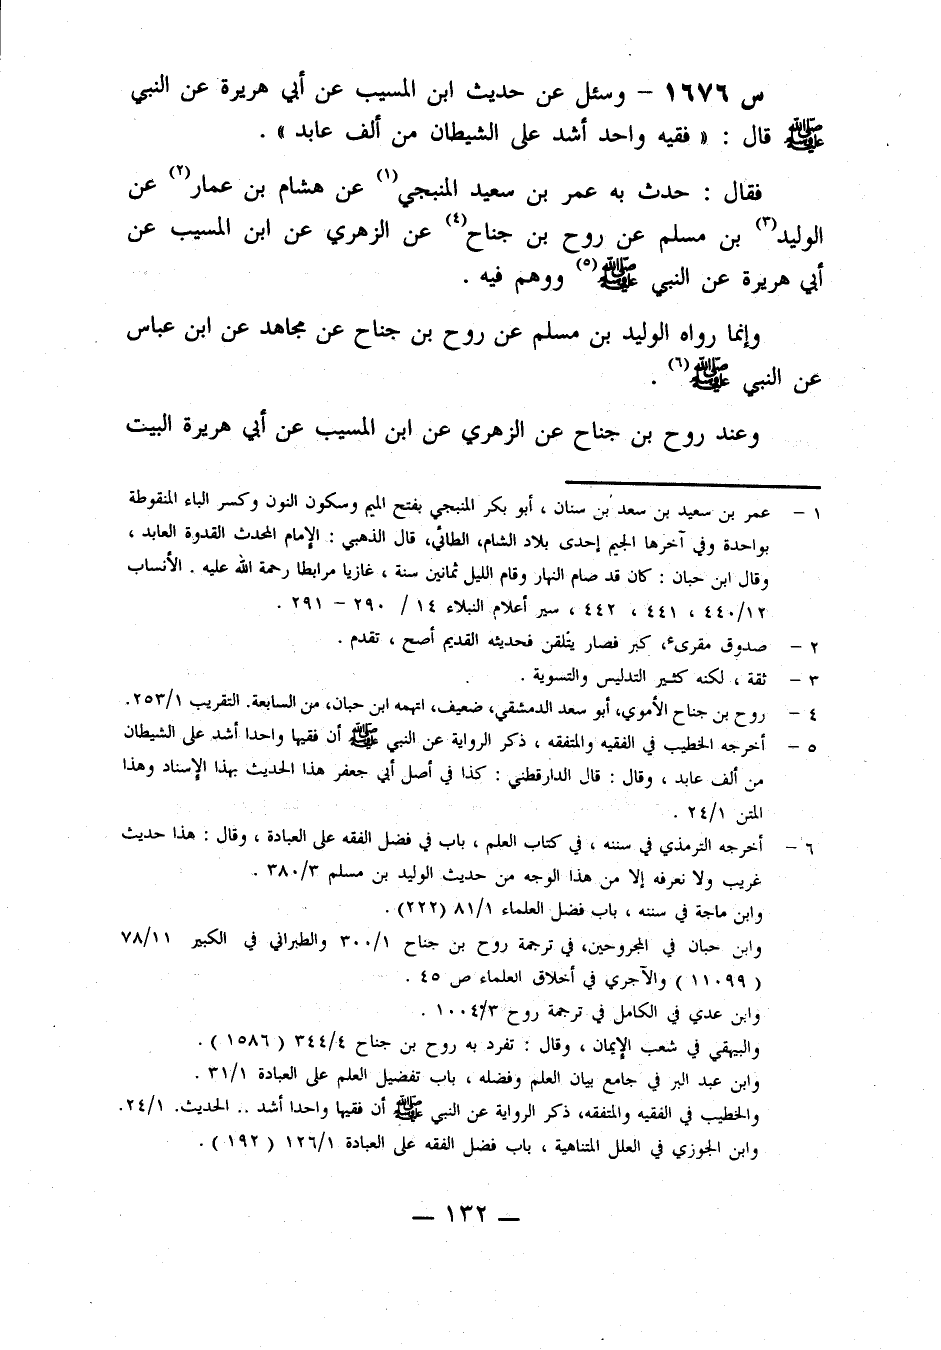 س ١٦٧٦ – وسئل عن حديث ابن المسيب عن أبي هريرة عن النبي
ﷺ قال : « فقيه واحد أشد على الشيطان من ألف عابد » .
فقال : حدث به عمر بن سعيد المنبجي(١) عن هشام بن عمار(٢) عن
الوليد(٣) بن مسلم عن روح بن جناح(٤) عن الزهري عن ابن المسيب عن
أبي هريرة عن النبي ﷺ(٥) ووهم فيه .
وإنما رواه الوليد بن مسلم عن روح بن جناح عن مجاهد عن ابن عباس
عن النبي ﷺ(٦) .
وعند روح بن جناح عن الزهري عن ابن المسيب عن أبي هريرة البيت
١ – عمر بن سعيد بن سعد بن سنان ، أبو بكر المنبجي بفتح الميم وسكون النون وكسر الباء المنقوطة
بواحدة وفي آخرها الجيم إحدى بلاد الشام، الطائي، قال الذهبي : الإمام المحدث القدوة العابد ،
وقال ابن حبان : كان قد صام النهار وقام الليل ثمانين سنة ، غازيا مرابطا رحمة الله عليه . الأنساب
٤٤٠/١٢ ، ٤٤١ ، ٤٤٢ ، سير أعلام النبلاء ١٤ / ٢٩٠ – ٢٩١ .
٢ – صدوق مقرىء، كبر فصار يتلقن فحديثه القديم أصح ، تقدم .
٣ – ثقة ، لكنه كثير التدليس والتسوية .
٤ – روح بن جناح الأموي، أبو سعد الدمشقي، ضعيف، اتهمه ابن حبان، من السابعة. التقريب ٢٥٣/١.
٥ – أخرجه الخطيب في الفقيه والمتفقه ، ذكر الرواية عن النبي ﷺ أن فقيها واحدا أشد على الشيطان
من ألف عابد ، وقال : قال الدارقطني : كذا في أصل أبي جعفر هذا الحديث بهذا الإسناد وهذا
المتن ٢٤/١ .
٦ – أخرجه الترمذي في سننه ، في كتاب العلم ، باب في فضل الفقه على العبادة ، وقال : هذا حديث
غريب ولا نعرفه إلا من هذا الوجه من حديث الوليد بن مسلم ٣٨٠/٣ .
وابن ماجة في سننه ، باب فضل العلماء ٨١/١ (٢٢٢) .
وابن حبان في المجروحين، في ترجمة روح بن جناح ٣٠٠/١ والطبراني في الكبير ٧٨/١١
( ١١٠٩٩ ) والآجري في أخلاق العلماء ص ٤٥ .
وابن عدي في الكامل في ترجمة روح ١٠٠٤/٣ .
والبيهقي في شعب الإيمان ، وقال : تفرد به روح بن جناح ٣٤٤/٤ ( ١٥٨٦ ) .
وابن عبد البر في جامع بيان العلم وفضله ، باب تفضيل العلم على العبادة ٣١/١ .
والخطيب في الفقيه والمتفقه، ذكر الرواية عن النبي ﷺ أن فقيها واحدا أشد .. الحديث. ٢٤/١.
وابن الجوزي في العلل المتناهية ، باب فضل الفقه على العبادة ١٢٦/١ ( ١٩٢ ) .
– ١٣٢ –